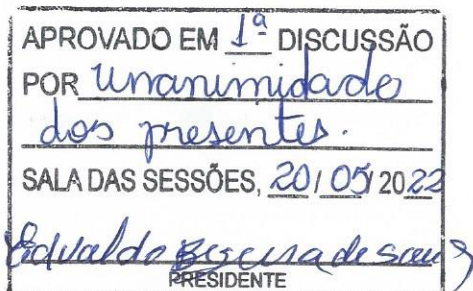 APROVADO EM 1ª DISCUSSÃO
POR Unanimidade
dos presentes.
SALA DAS SESSÕES, 20/05/2022
Edvaldo Bezerra de
PRESIDENTE